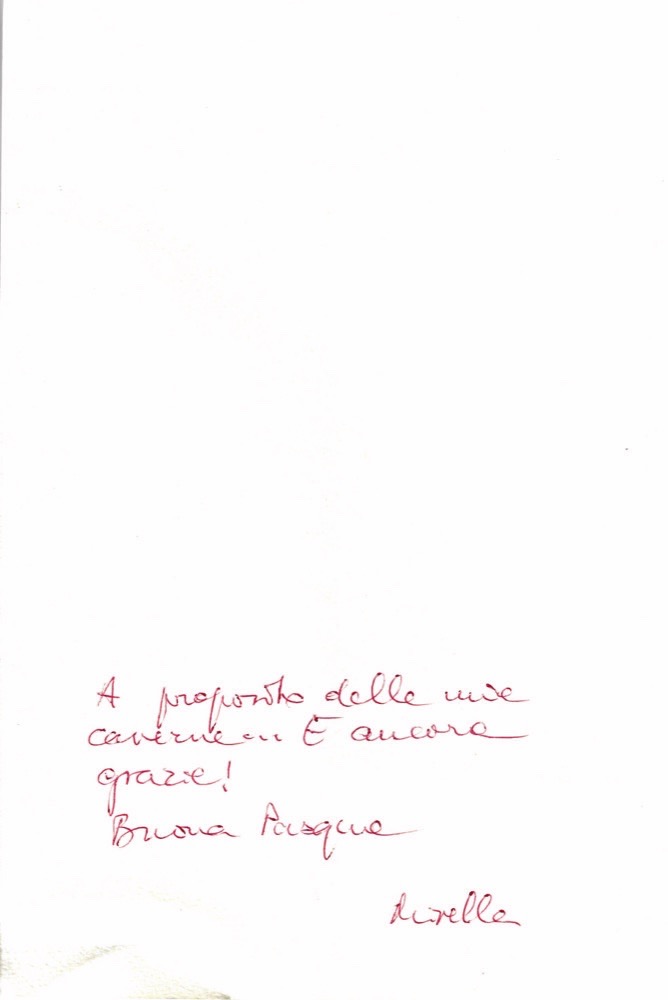 A proposito delle mie
caverne... E ancora
grazie!
Buona Pasqua
Mirella